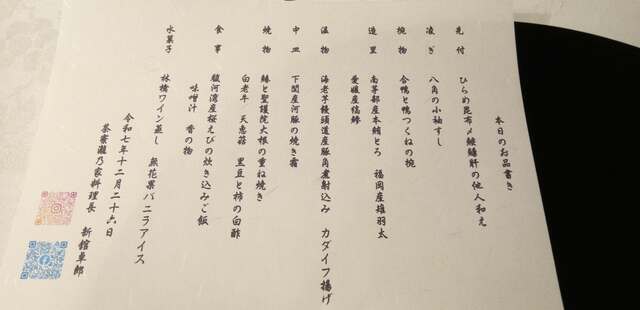 本日のお品書き
先付 ひらめ昆布〆鮟鱇肝の他人和え
凌ぎ 八角の小袖すし
椀物 合鴨と鴨つくねの椀
造里 南茅部産本鮪とろ 福岡産雄羽太
愛媛産縞鯵
温物 海老芋饅頭道産豚角煮射込み カダイフ揚げ
中皿 下関産河豚の焼き霜
焼物 鰆と聖護院大根の重ね焼き
白老牛 天恵菇 黒豆と柿の白酢
食事 駿河湾産桜えびの炊き込みご飯
味噌汁 香の物
水菓子 林檎ワイン蒸し 無花果バニラアイス
令和七年十二月二十六日
茶寮瀧乃家料理長 新舘卓郎